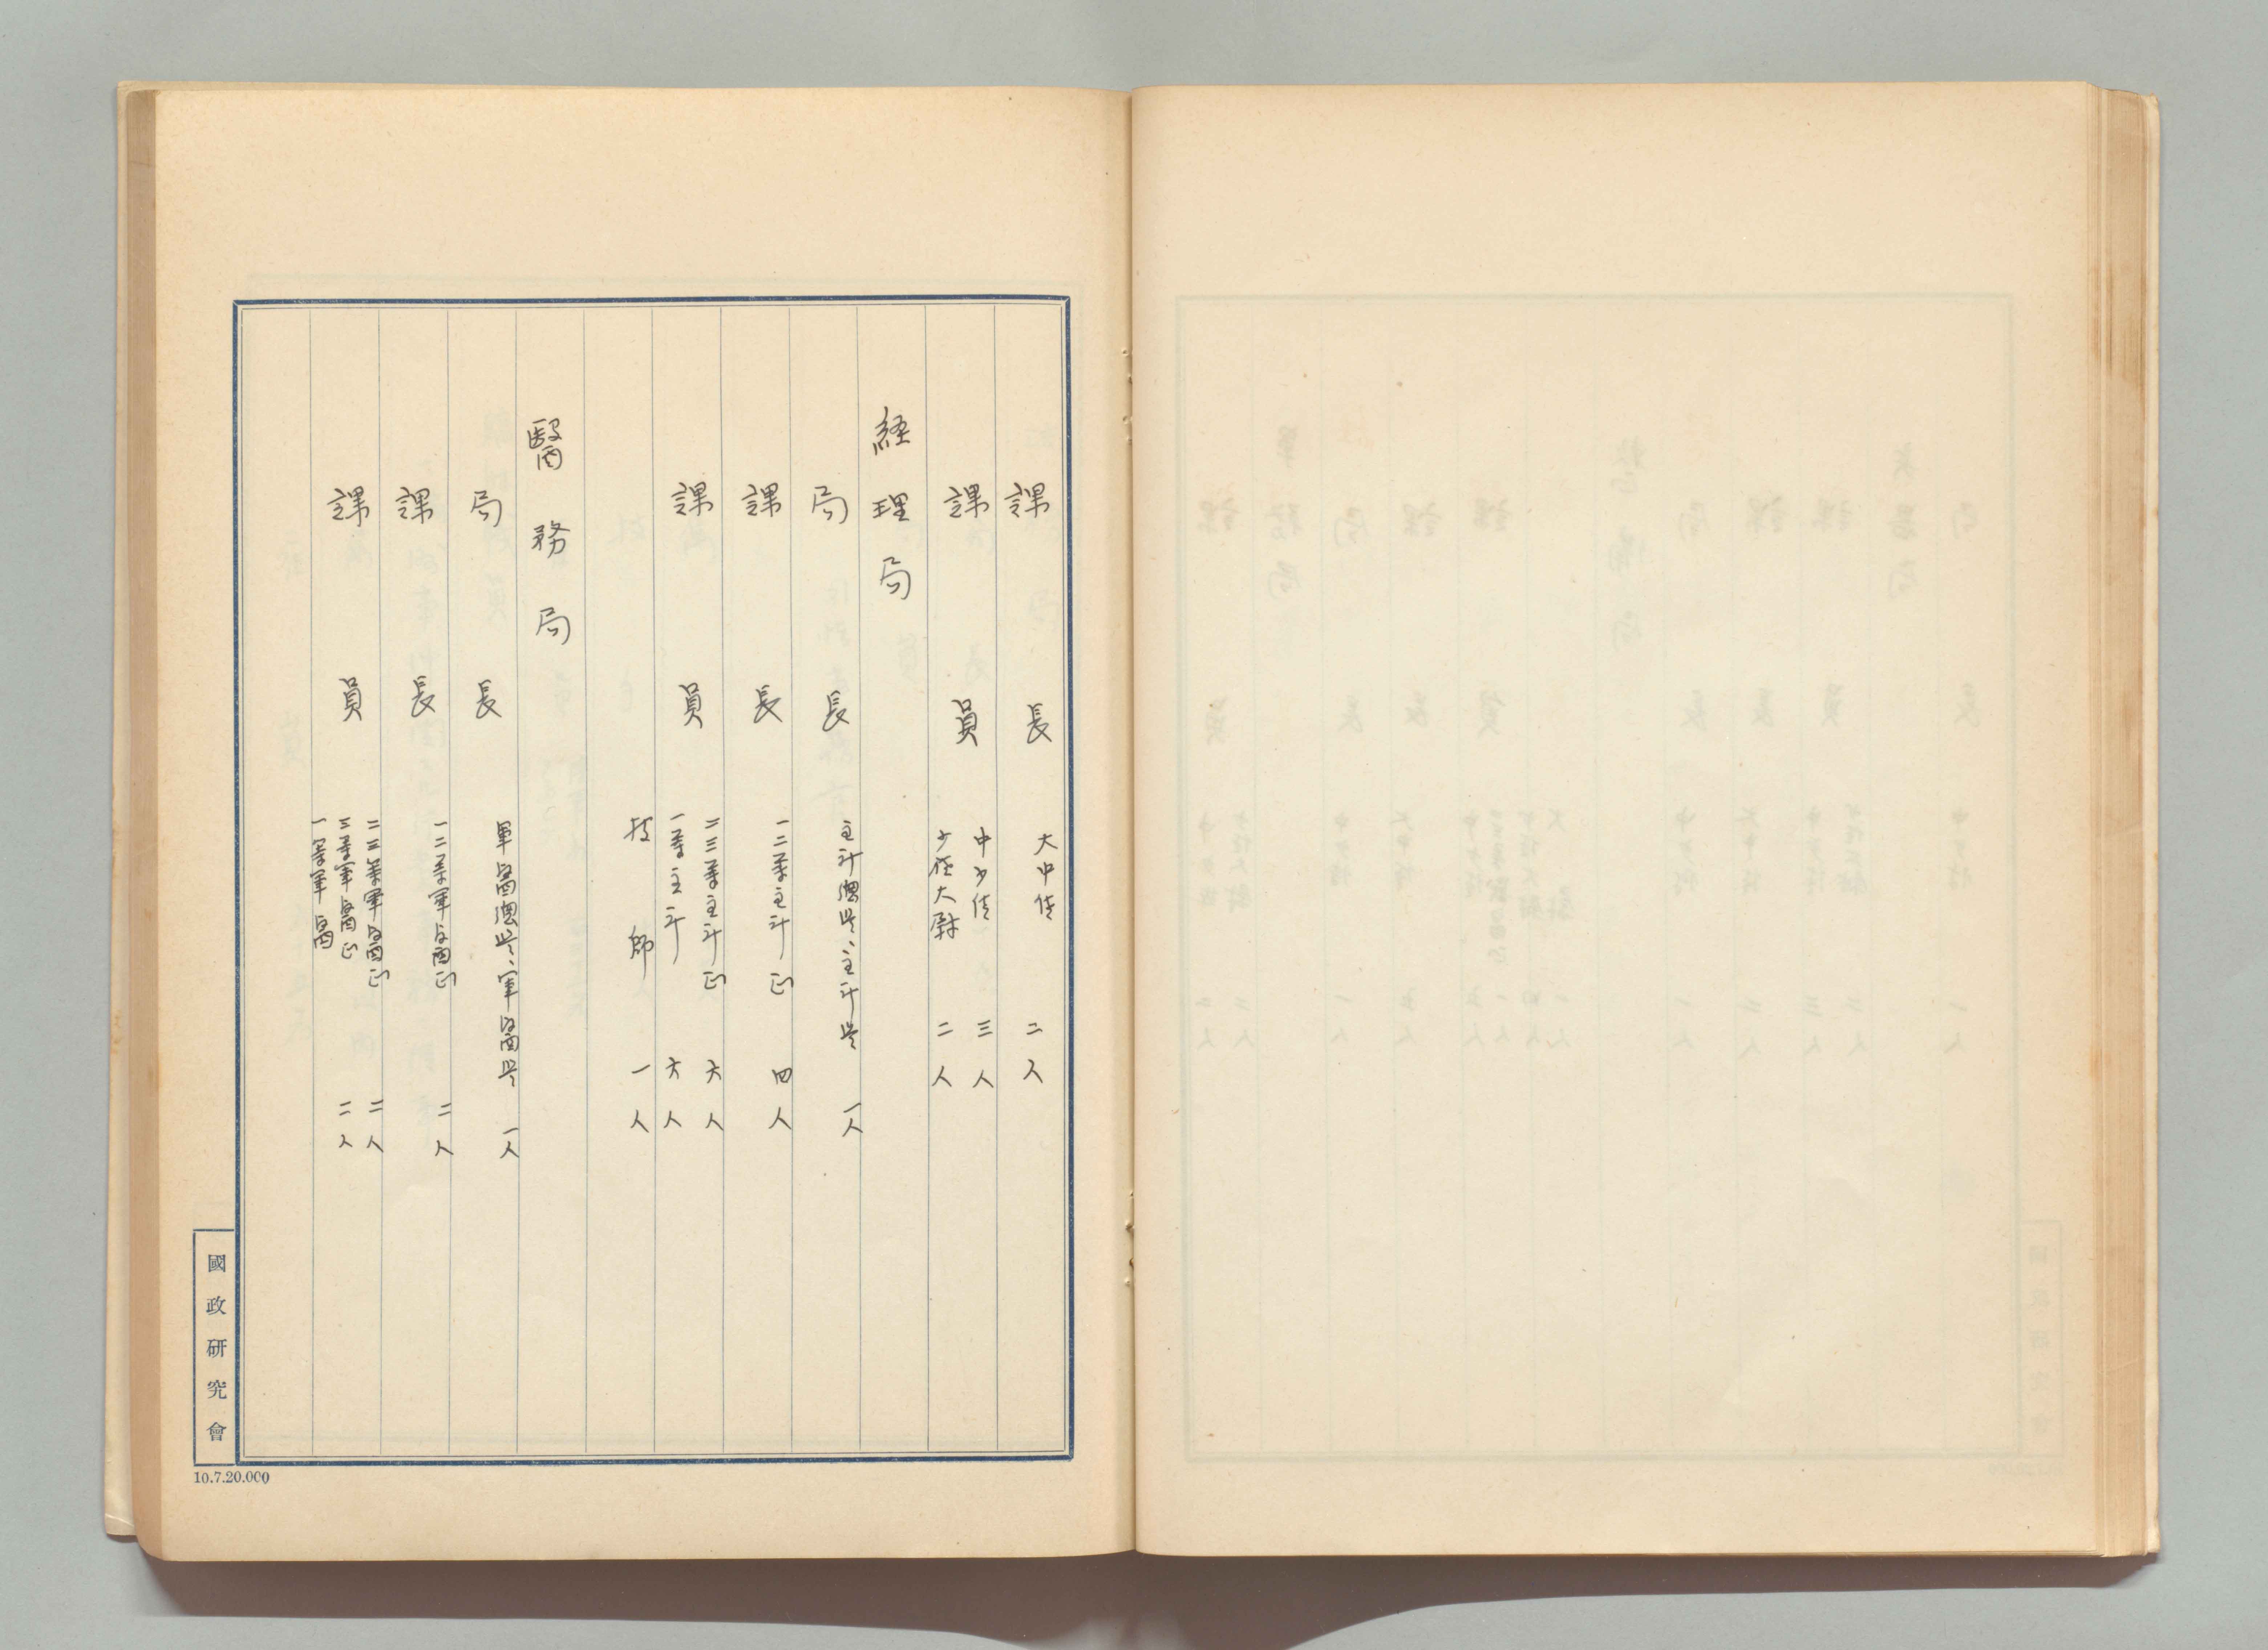 課長 大中佐 二人
課員 中少佐 三人
少佐大尉 二人
経理局
局長 主計總監、主計監 一人
課長 一二等主計正 四人
課員 二三等主計正 六人
一等主計 六人
技師 一人
醫務局
局長 軍醫總監、軍醫監 一人
課長 一二等軍醫正 二人
課員 二三等軍醫正 二人
三等軍醫正
一等軍醫 二人
國政研究會
10.7.20.000